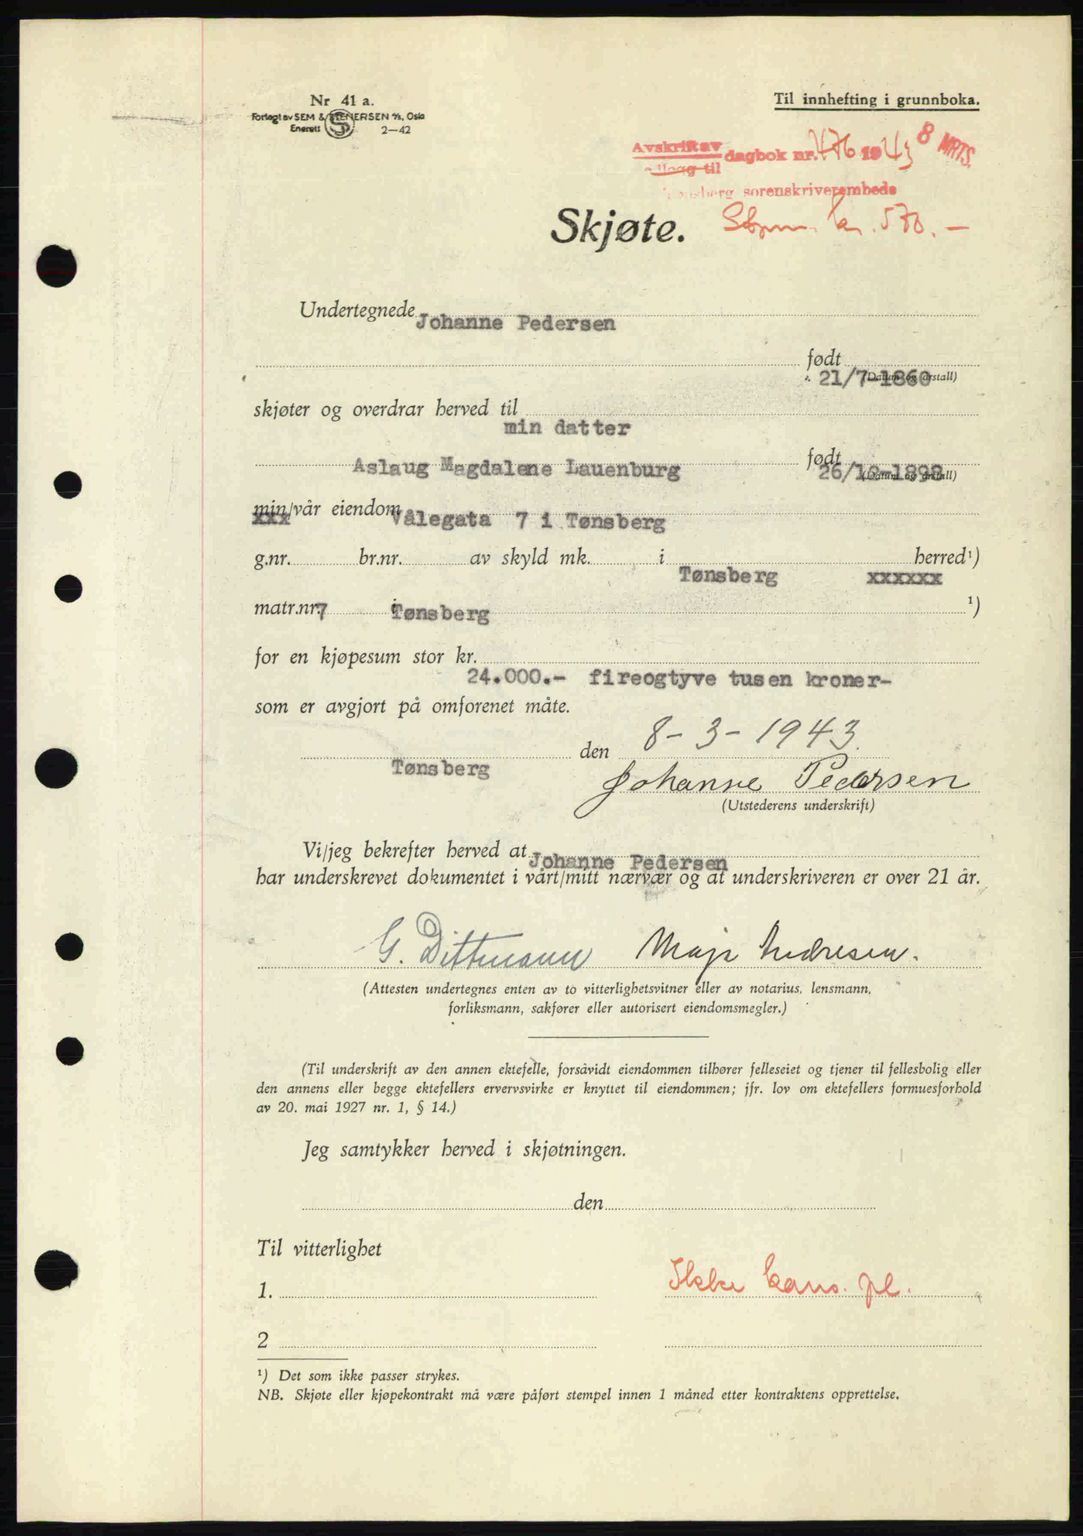 Nr 41 a.
Forlagt av SEM & STENERSEN A/S, Oslo
Enerett 2—42
Til innhefting i grunnboka.
Avskrift av
dagbok nr. 476 1943 8 MRTS.
til
sorenskriverembede
Skjøte.
Stpm. kr. 570.—
Undertegnede Johanne Pedersen
født 21/7-1860
(Datum og årstall)
skjøter og overdrar herved til min datter
Aslaug Magdalene Lauenburg født 26/12-1898
(Datum og årstall)
min/vår eiendom Vålegata 7 i Tønsberg
xxx
g.nr. br.nr. av skyld mk. i Tønsberg herred¹)
xxxxxx
matr.nr. 7 i Tønsberg ¹)
for en kjøpesum stor kr. 24.000.- fireogtyve tusen kroner-
som er avgjort på omforenet måte.
Tønsberg den 8-3-1943.
Johanne Pedersen
(Utstederens underskrift)
Vi/jeg bekrefter herved at Johanne Pedersen
har underskrevet dokumentet i vårt/mitt nærvær og at underskriveren er over 21 år.
G. Dittmann Maja Andresen.
(Attesten undertegnes enten av to vitterlighetsvitner eller av notarius, lensmann,
forliksmann, sakfører eller autorisert eiendomsmegler.)
(Til underskrift av den annen ektefelle, forsåvidt eiendommen tilhører felleseiet og tjener til fellesbolig eller
den annens eller begge ektefellers ervervsvirke er knyttet til eiendommen; jfr. lov om ektefellers formuesforhold
av 20. mai 1927 nr. 1, § 14.)
Jeg samtykker herved i skjøtningen.
den
Til vitterlighet
1.
Ikke kons. pl.
2
¹) Det som ikke passer strykes.
NB. Skjøte eller kjøpekontrakt må være påført stempel innen 1 måned etter kontraktens opprettelse.